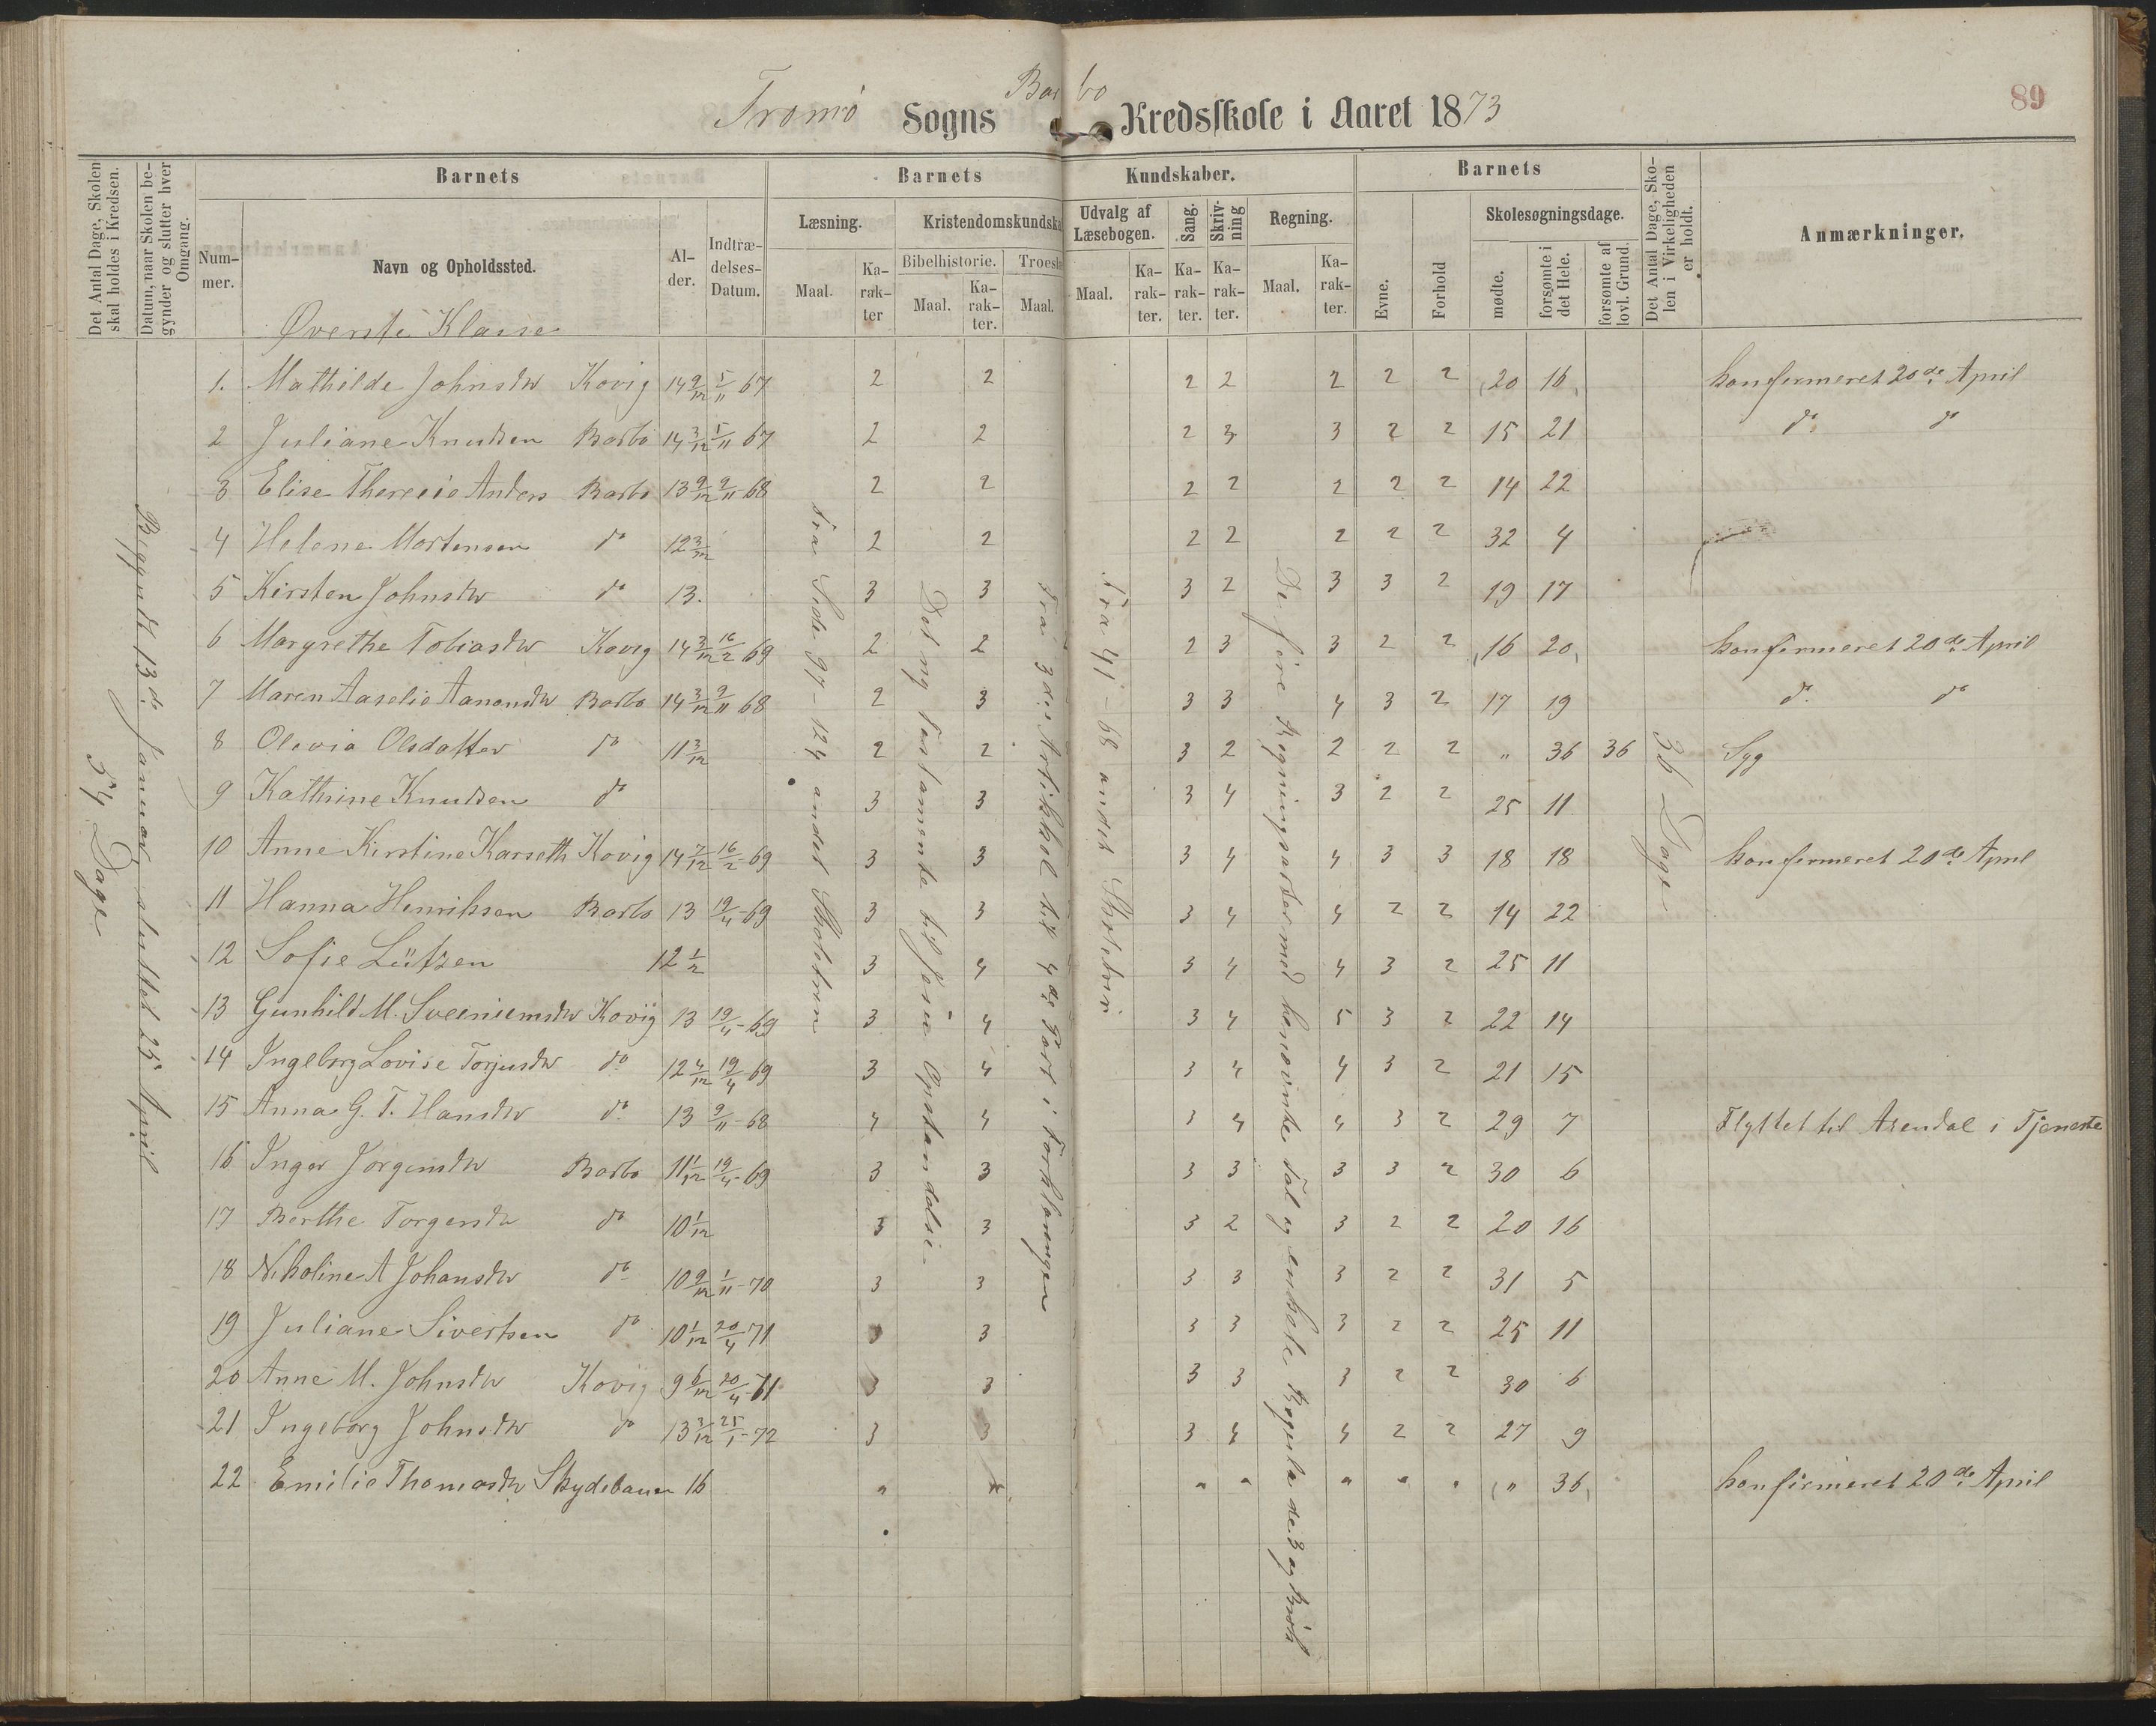 Tromø Sogns Barbo Kredsskole i Aaret 1873
89
Det Antal Dage, Skolen skal holdes i Kredsen.
Datum, naar Skolen begynder og slutter hver Omgang.
Barnets
Nummer.
Navn og Opholdssted.
Alder.
Indtrædelses-Datum.
Barnets Kundskaber.
Læsning.
Maal.
Karakter
Kristendomskundska
Bibelhistorie.
Maal.
Karakter.
Troesl
Maal.
Udvalg af Læsebogen.
Maal.
Karakter.
Sang.
Karakter.
Skrivning
Karakter.
Regning.
Maal.
Karakter.
Barnets
Evne.
Forhold
Skolesøgningsdage.
mødte.
forsømte i det Hele.
forsømte af lovl. Grund.
Det Antal Dage, Skolen i Virkeligheden er holdt.
Anmærkninger.
Øverste Klasse
1. Mathilde Johnsdtr Kovig 14 9/12 5/11 67 2 2 2 2 2 2 2 20 16 konfirmeret 20de April
2 Juliane Knudsen Barbo 14 3/12 5/11 67 2 2 2 3 3 2 2 15 21 do do
3 Elise Theresie Anders Barbo 13 9/12 9/11 68 2 2 2 2 2 2 2 14 22
4 Helene Mortensen do 12 3/12 2 2 2 2 2 2 2 32 4
5 Kirsten Johnsdtr do 13. 3 3 3 2 3 3 2 19 17
6 Margrethe Tobiasdtr Kovig 14 3/12 16/2 69 2 2 2 3 3 2 2 16 20 konfirmeret 20de April
7 Maren Aaselie Aanonsdtr Barbo 14 3/12 9/11 68 2 3 3 3 4 3 2 17 19 do do
8 Olevia Olsdatter do 11 3/12 2 2 3 2 2 2 2 " 36 36 Syg
9 Kathrine Knudsen do 3 3 3 4 3 2 2 25 11
10 Anne Kirstine Karseth Kovig 14 7/12 16/2 69 3 3 3 4 4 3 3 18 18 konfirmeret 20de April
11 Hanna Henriksen Barbo 13 19/4-69 3 3 3 4 4 2 2 14 22
12 Sofie Lützen 12 1/2 3 4 3 4 4 3 2 25 11
13 Gunhild M. Kovig 13 19/4-69 3 4 3 4 5 3 2 22 14
14 Ingeborg Lovise Torjusdtr do 12 4/12 19/4 69 3 4 3 4 4 3 2 21 15
15 Anna G. T. Hansdtr do 13 9/11-68 4 4 3 4 4 3 2 29 7 Flyttet til Arendal i Tjeneste
16 Inger Jørgensdtr Barbo 11 1/12 19/4-69 3 3 3 3 3 3 2 30 6
17 Berthe Torgersdtr do 10 1/12 3 3 3 2 3 2 2 20 16
18 Nikoline A Johansdtr do 10 9/12 1/11-70 3 3 3 3 3 2 2 31 5
19 Juliane Sivertsen do 10 1/12 20/4-71 3 3 3 3 3 2 2 25 11
20 Anne M. Johnsdtr Kovig 9 6/12 20/4-71 3 3 3 3 3 2 2 30 6
21 Ingeborg Johnsdtr do 13 3/12 25/1-72 3 3 3 4 4 2 2 27 9
22 Emilie Thomasdtr 16 " " " " " " " 36 konfirmeret 20de April
54 Dage
Begyndt 13de Januar, sluttet 25 April
Fra Side 97 - 124 andet Skoletrin
Det ny Testamente til Jesu Opstandelse.
Fra 3die Artikkel til 4de Part i Forklaringen
Fra 41 - 68 andet Skoletrin
De fire Regningsarter med benævnte Tal og enkelte
36 Dage